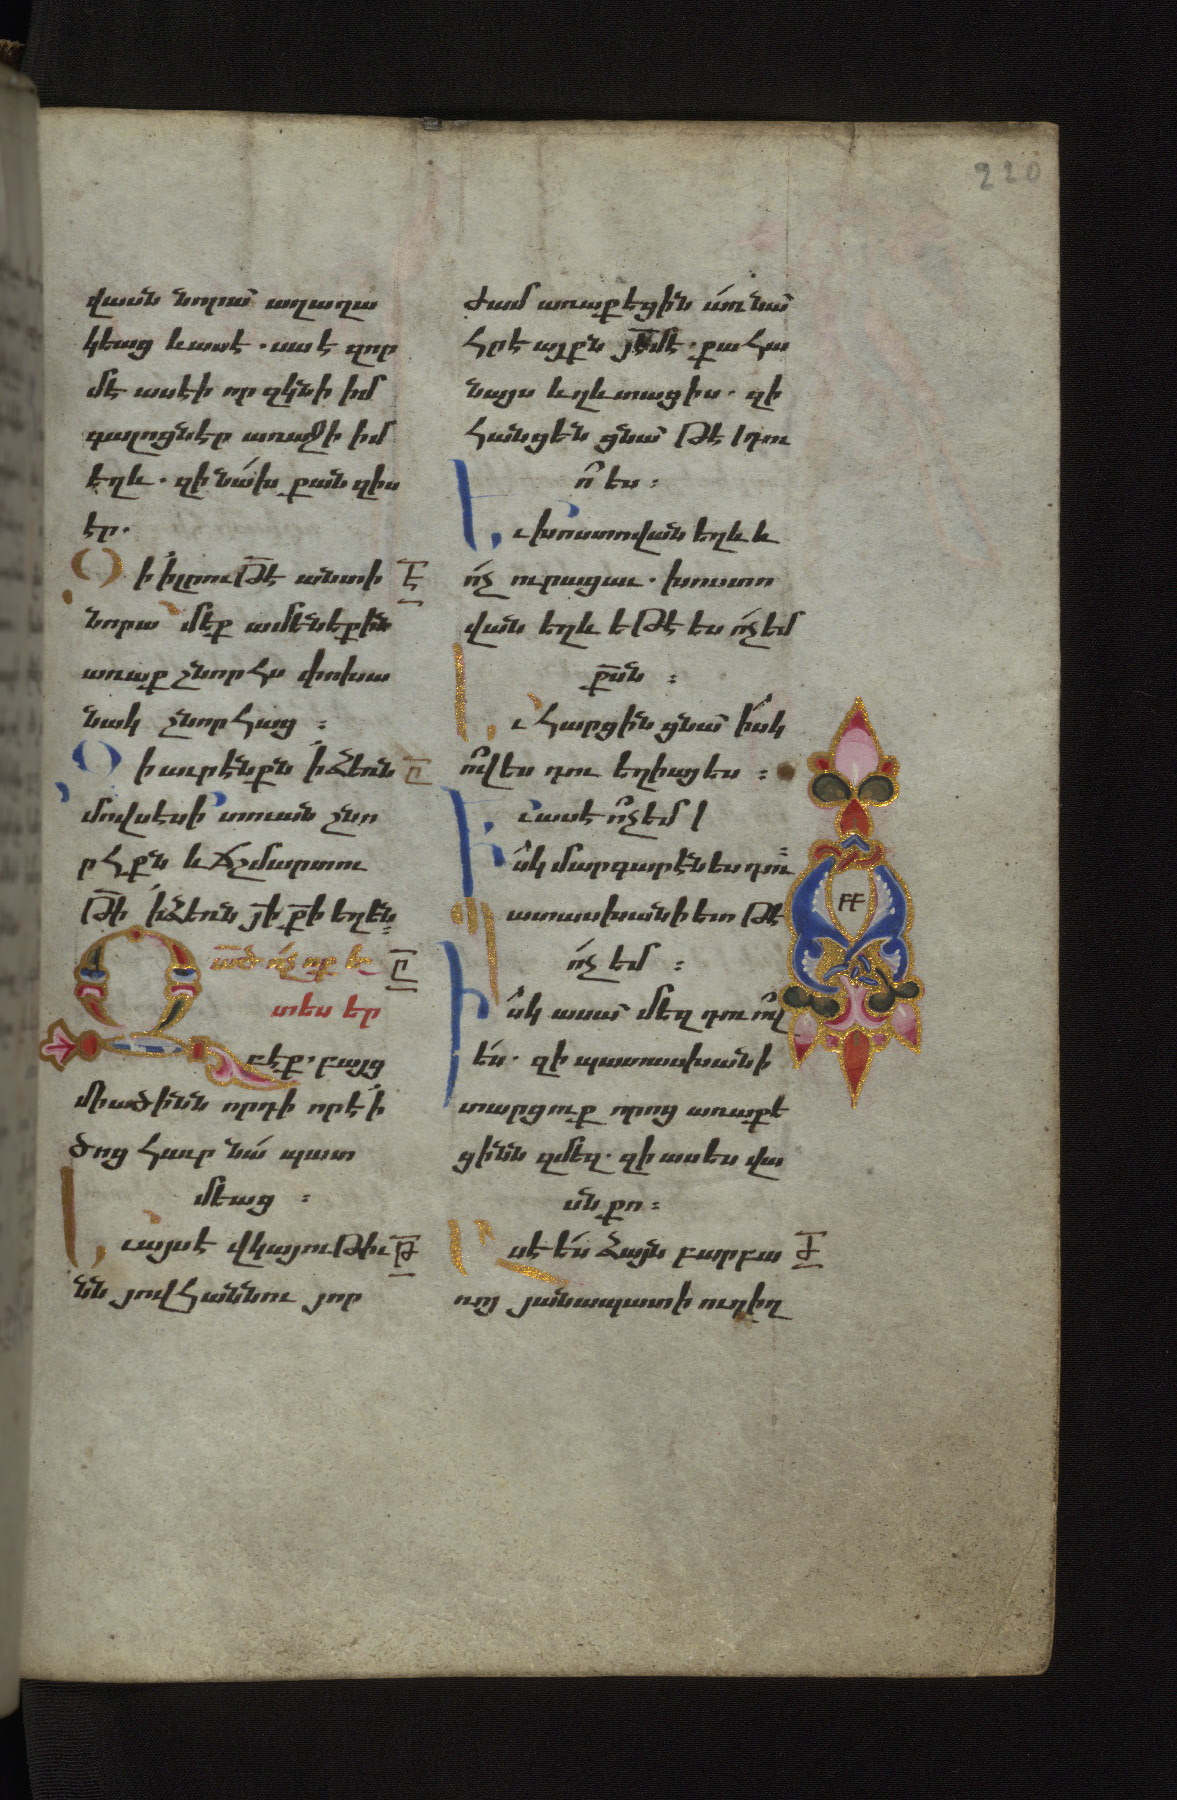 220
վասն նորա՝ աղաղա
կեաց և ասէ. սա է զոր
մէ ասէի որ զկնի իմ
գալոցն էր առաջի իմ
եղև. զի նա՛խ քան զիս
էր.
Զի ի լրութէ անտի Է
նորա մեք ամենեքին
առաք շնորհս փոխա
նակ շնորհաց :
Զի աւրէնքն ի ձեռն Ը
մովսէսի տուան շնո
րհքն և ճշմարտու
թի ի ձեռն յի քի եղեն:
Զած ո՛չ ոք ե Ը
տես եր
բեք. բայց
միածինն որդի որ է ի
ծոց հաւր նա՛ պատ
մեաց :
Եւ այս է վկայութիւ Թ
նն յովհաննու յոր
ժամ առաքեցին առ նա՝
հրէայքն յէմէ. քահա
նայս և ղևտացիս. զի
հանցեն ցնա՝ թէ դու
ո՞ ես :
Եւ խոստովան եղև և
ո՛չ ուրացաւ. խոստո
վան եղև եթէ ես ո՛չ եմ
քսն :
Եւ հարցին ցնա՝ իսկ
ո՞վ ես դու եղիայ ես :
Եւ ասէ ո՛չ եմ
Իսկ մարգարէն ես դու:
Պատասխանի ետ թէ
ո՛չ եմ :
Իսկ ասա՝ մեզ դու ո՞վ
ես. զի պատասխանի
տարցուք որոց առաքե
ցինն զմեզ. զի ասես վա
սն քո :
Ասէ ես ձայն բարբա Ժ
ռոյ յանապատի ուղիղ